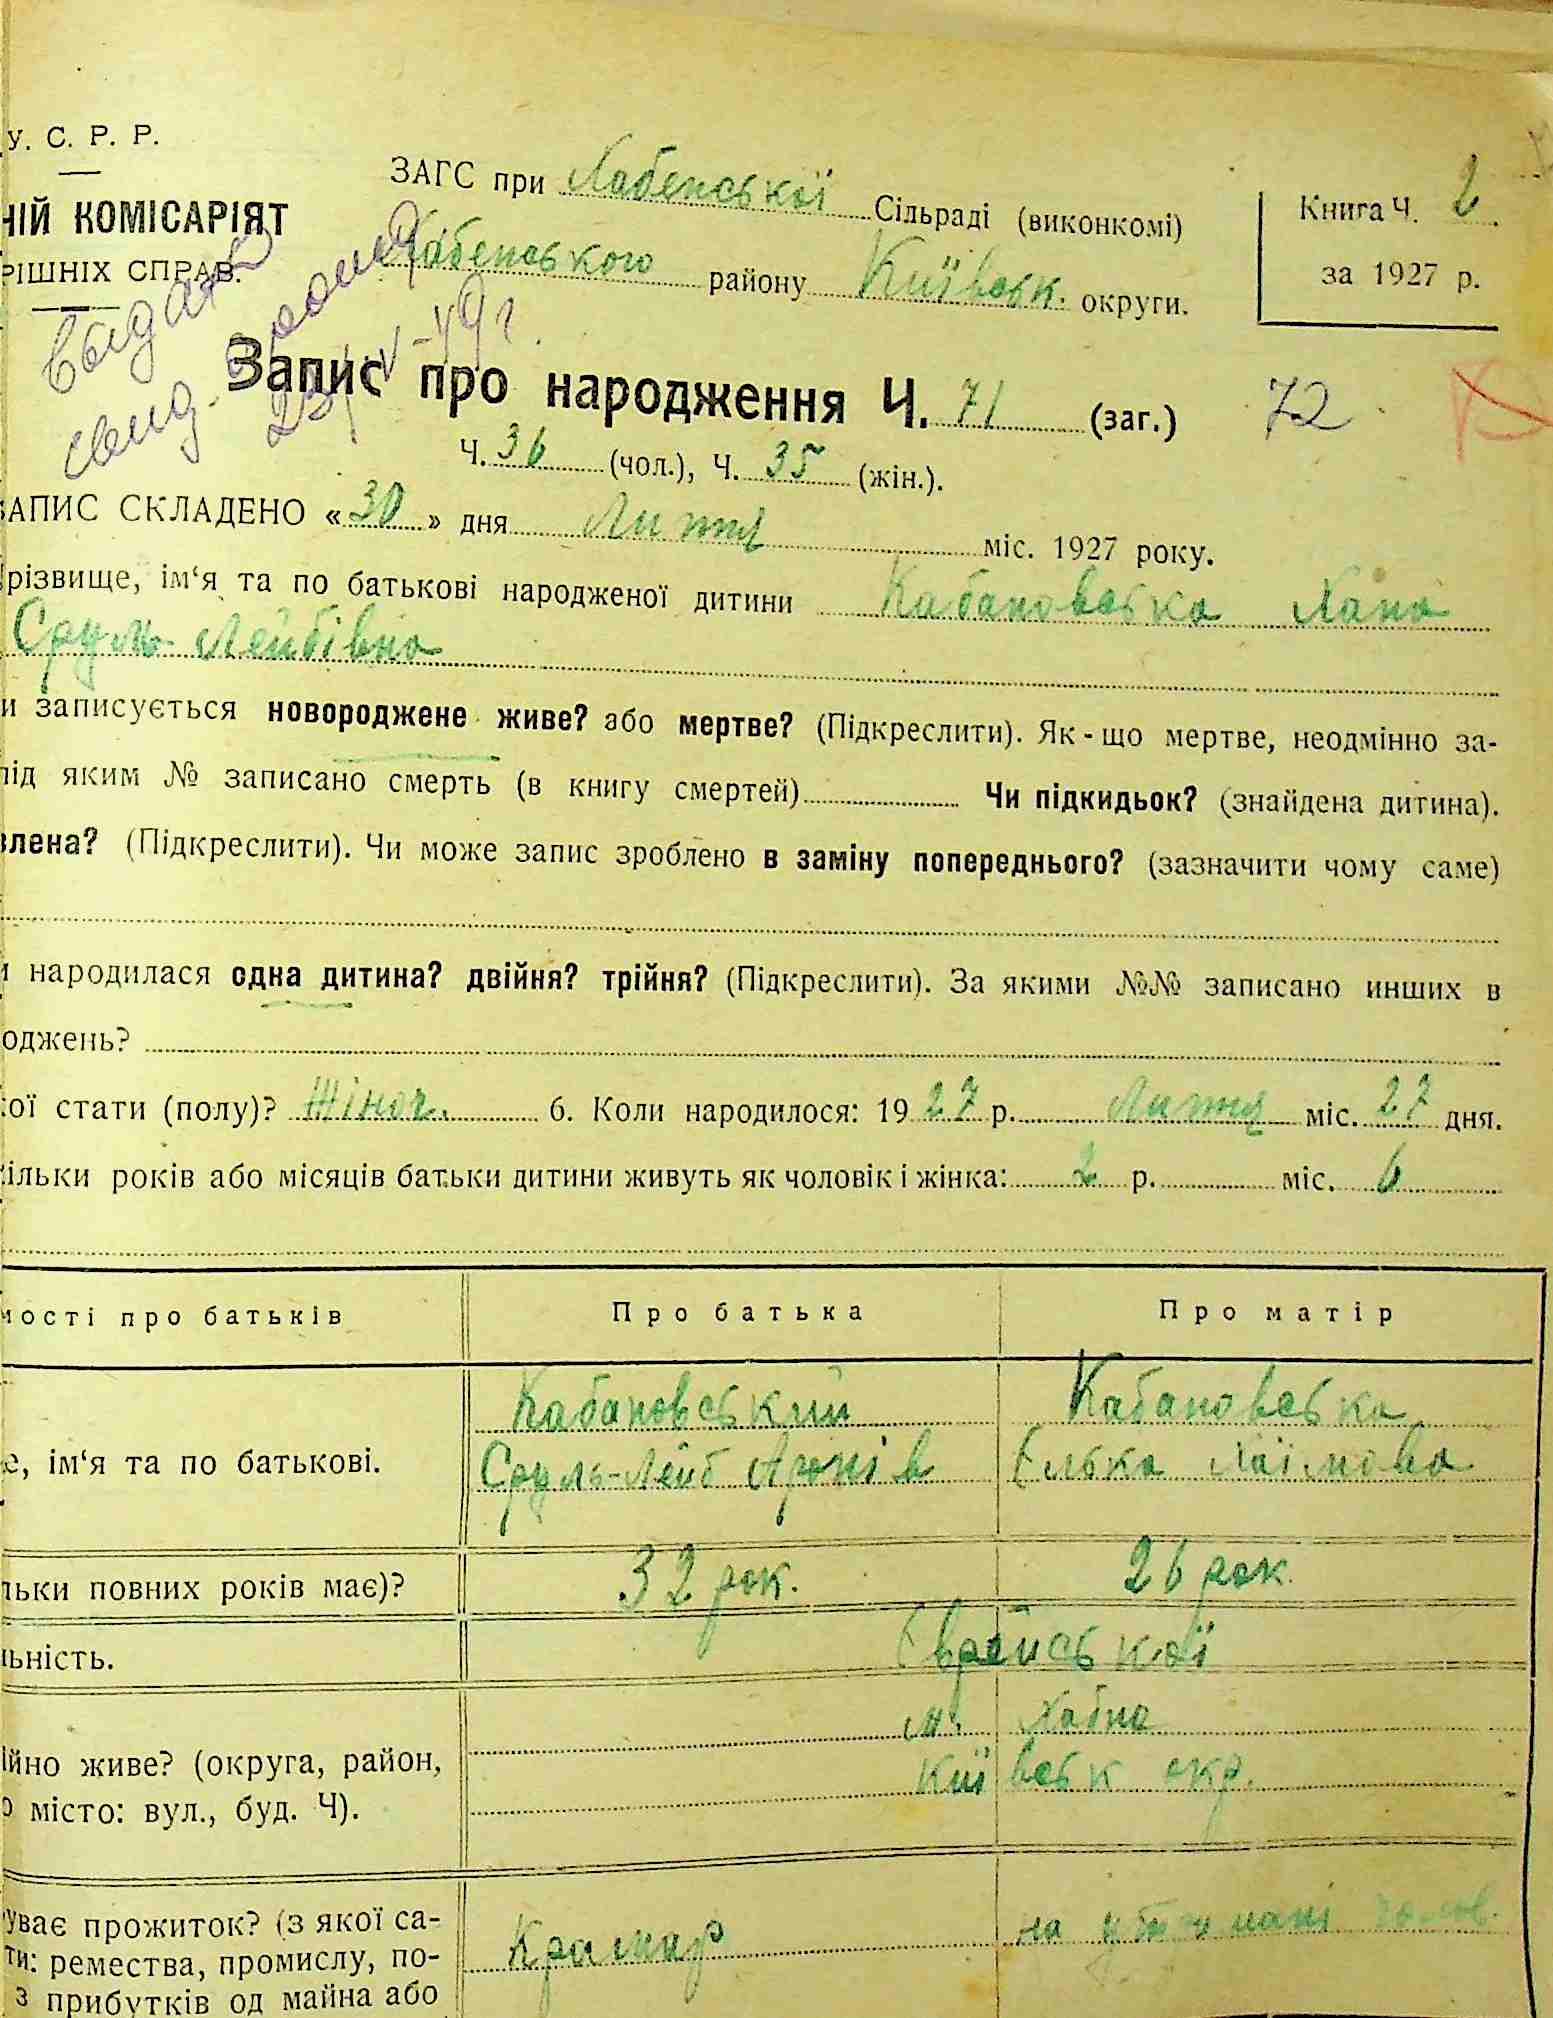 У. С. Р. Р.
НІЙ КОМІСАРІЯТ
РІШНІХ СПРАВ.
ЗАГС при Хабенської Сільраді (виконкомі)
Хабенського району Київськ. округи.
Книга Ч. 2
за 1927 р.
Запис про народження Ч. 71 (заг.) 72
23/IV-49 г
Ч. 36 (чол.), Ч. 35 (жін.).
ЗАПИС СКЛАДЕНО «30» дня Липня міс. 1927 року.
Прізвище, ім‘я та по батькові народженої дитини Кабановська Хана
Сруль-Лейбівна
и записується новороджене живе? або мертве? (Підкреслити). Як-що мертве, неодмінно за-
під яким № записано смерть (в книгу смертей) Чи підкидьок? (знайдена дитина).
влена? (Підкреслити). Чи може запис зроблено в заміну попереднього? (зазначити чому саме)
и народилася одна дитина? двійня? трійня? (Підкреслити). За якими №№ записано инших в
оджень?
кої стати (полу)? Жіноч. 6. Коли народилося: 1927 р. Липня міс. 27 дня.
ільки років або місяців батьки дитини живуть як чоловік і жінка: 2 р. міс. 6
мості про батьків Про батька Про матір
Кабановський Кабановська
е, ім‘я та по батькові. Сруль-Лейб Аронів Елька Хаімовна
льки повних років має)? 32 рок. 26 рок.
льність. Єврейської
м. Хабна
ійно живе? (округа, район, Київськ окр.
о місто: вул., буд. Ч).
ує прожиток? (з якої са- Крамар на утримані чолов.
ти: ремества, промислу, по-
з прибутків од майна або